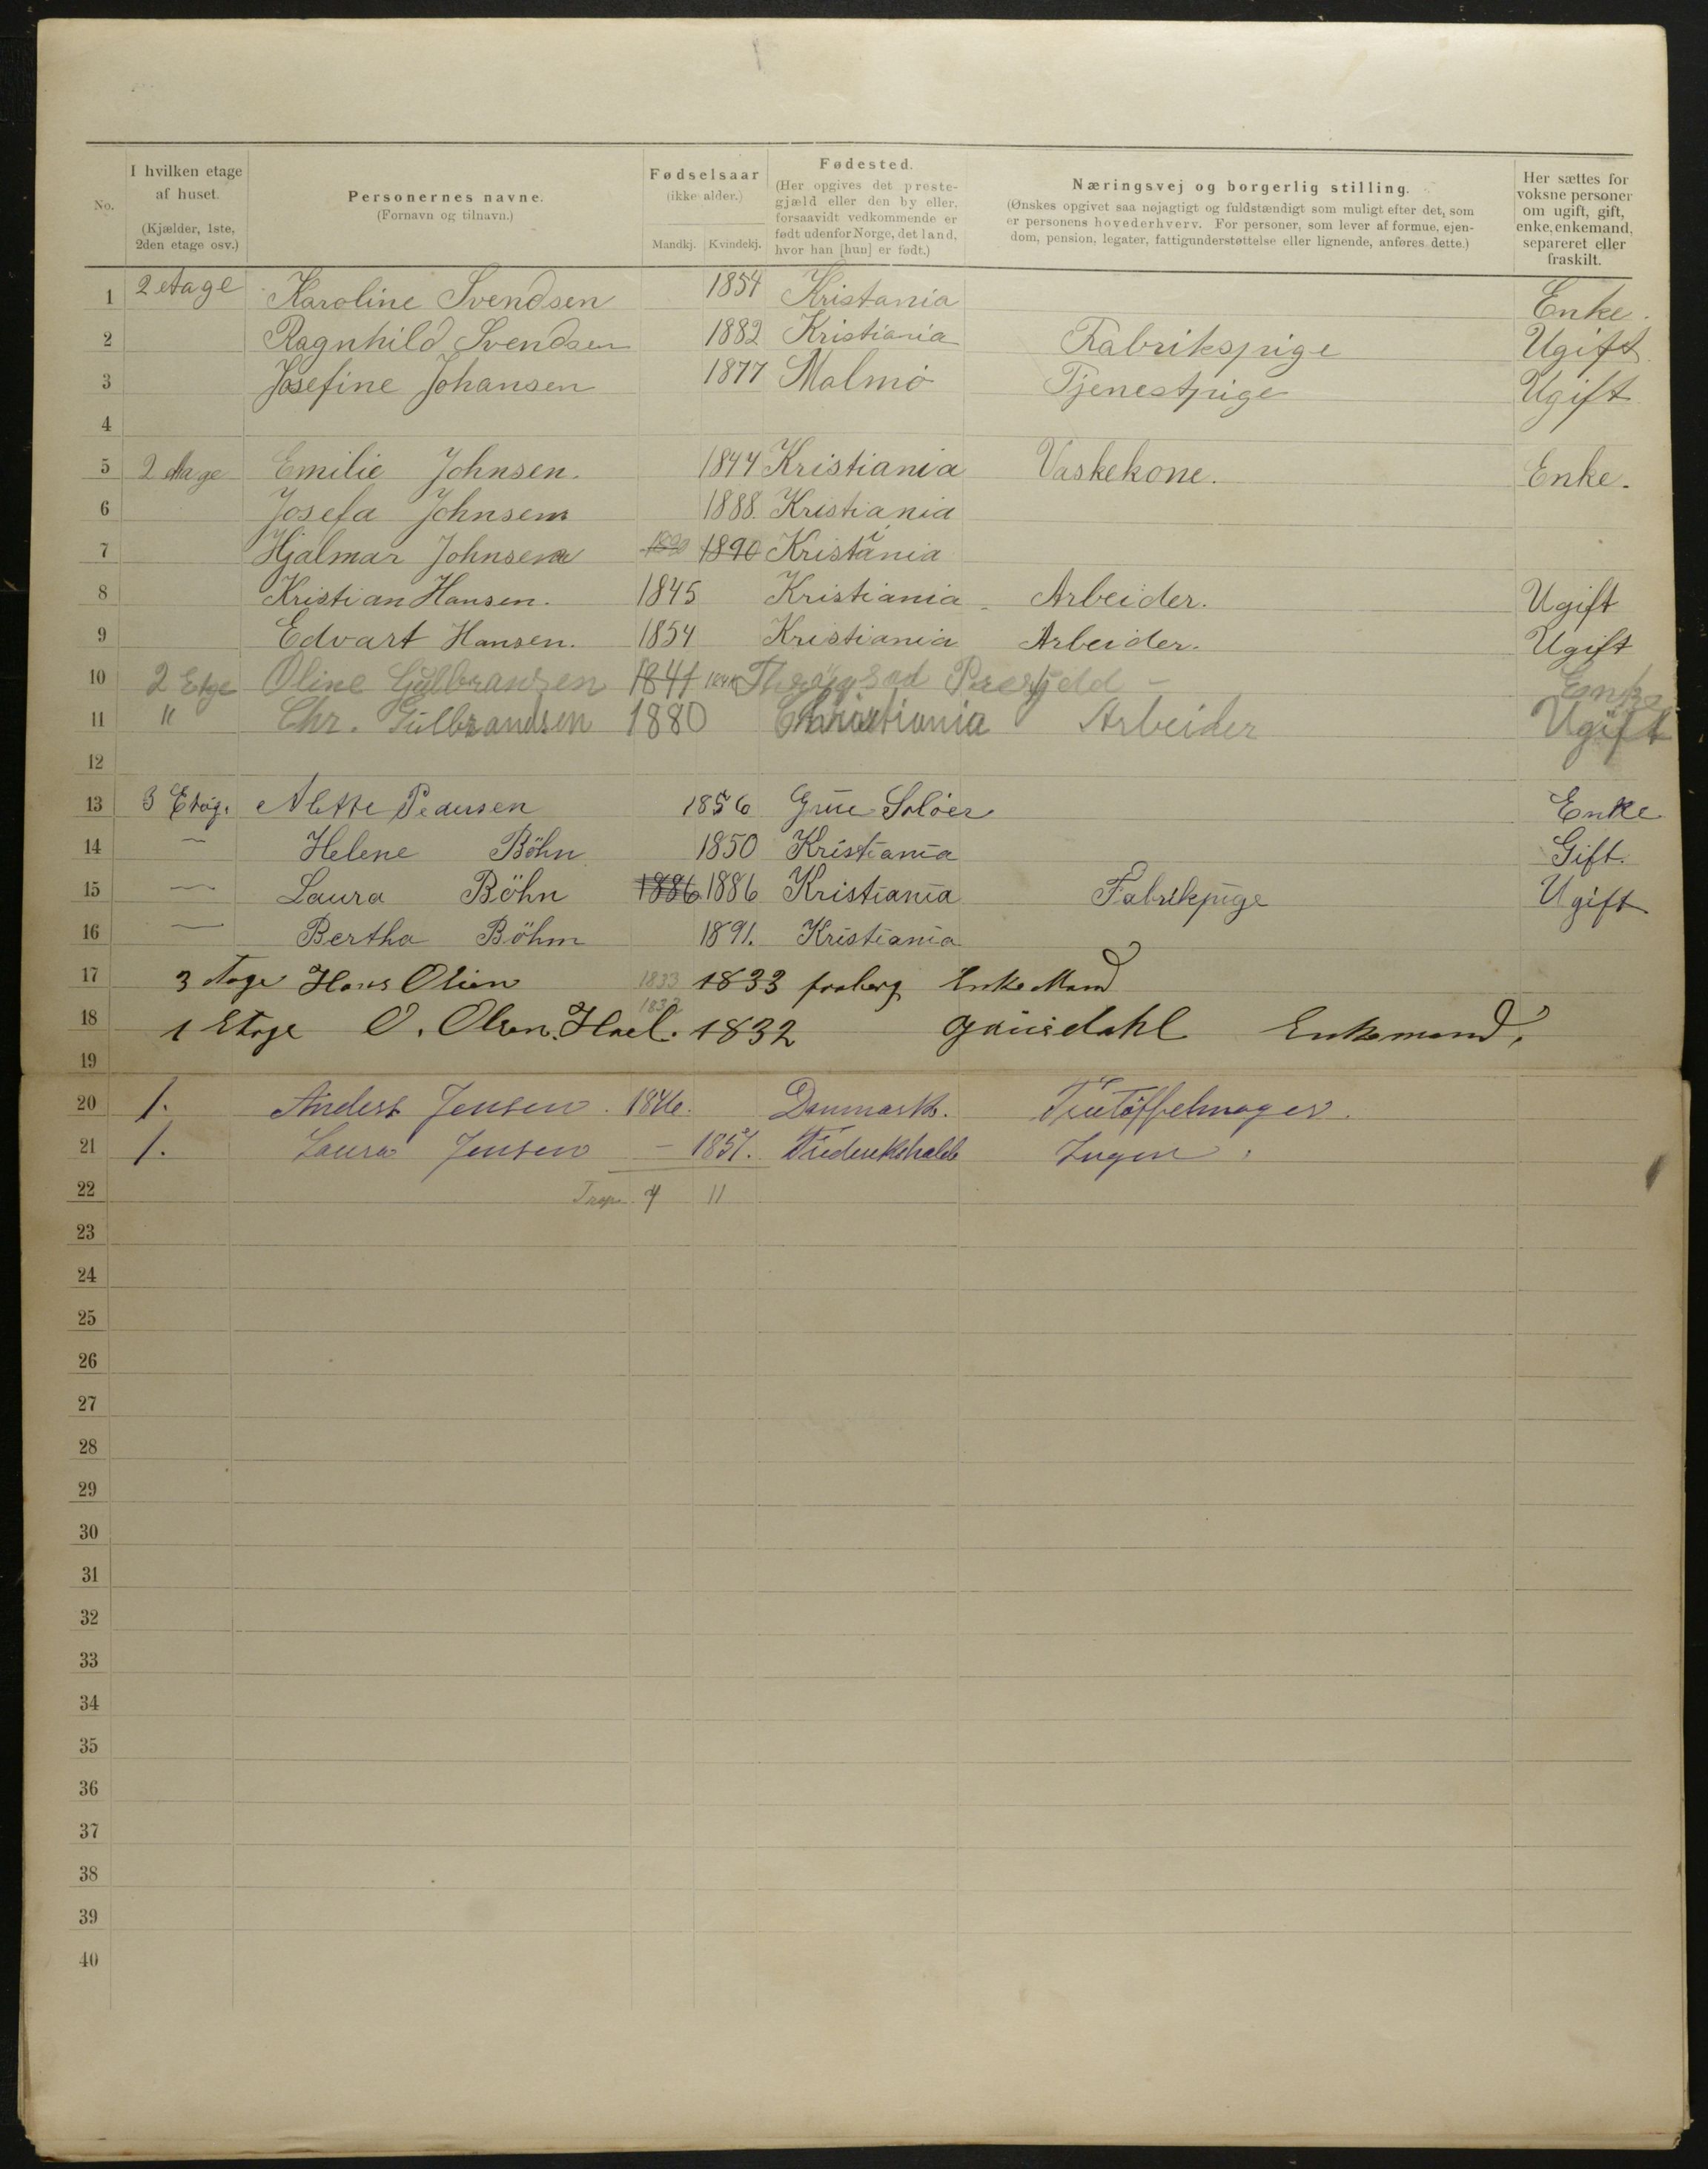 No.
I hvilken etage
af huset.
(Kjælder, 1ste,
2den etage osv.)
Personernes navne.
(Fornavn og tilnavn.)
Fødselsaar
(ikke alder.)
Mandkj. Kvindekj.
Fødested.
(Her opgives det preste-
gjæld eller den by eller,
forsaavidt vedkommende er
født udenfor Norge, det land,
hvor han [hun] er født.)
Næringsvej og borgerlig stilling.
(Ønskes opgivet saa nøjagtigt og fuldstændigt som muligt efter det, som
er personens hovederhverv. For personer, som lever af formue, ejen-
dom, pension, legater, fattigunderstøttelse eller lignende, anføres dette.)
Her sættes for
voksne personer
om ugift, gift,
enke, enkemand,
separeret eller
fraskilt.
1 2 etage Karoline Svendsen 1854 Kristania Enke.
2 Ragnhild Svendsen 1882 Kristiania Fabrikspige Ugift
3 Josefine Johansen 1877 Malmø Tjenestpige Ugift
4
5 2 etage Emilie Johnsen. 1844 Kristiania Vaskekone. Enke.
6 Josefa Johnsen 1888. Kristiania
7 Hjalmar Johnsen 1890 1890 Kristiania
8 Kristian Hansen. 1845 Kristiania Arbeider. Ugift
9 Edvart Hansen. 1854 Kristiania Arbeider. Ugift
10 2 Etge Oline Gulbransen 1841 1841 Enke
11 " Chr. Gulbrandsen 1880 Christiania Arbeider Ugift
12
13 3 Etag. Alette Pedersen 1856 Grue Soløer Enke
14 — Helene Böhn 1850 Kristiania Gift.
15 — Laura Böhn 1886 1886 Kristiania Fabrikpige Ugift
16 — Bertha Böhm 1891. Kristiania
17 3 etage Hans Olsen 1833 1833 faaberg Enke Mand
18 1 Etage O. Olsen. 1832 1832 Gausdahl Enkemand.
19
20 1. Anders Jensen. 1846. Danmark. Trætøffelmager.
21 1. Laura Jensen — 1857. Frederikshald Ingen.
22 4 11
23
24
25
26
27
28
29
30
31
32
33
34
35
36
37
38
39
40